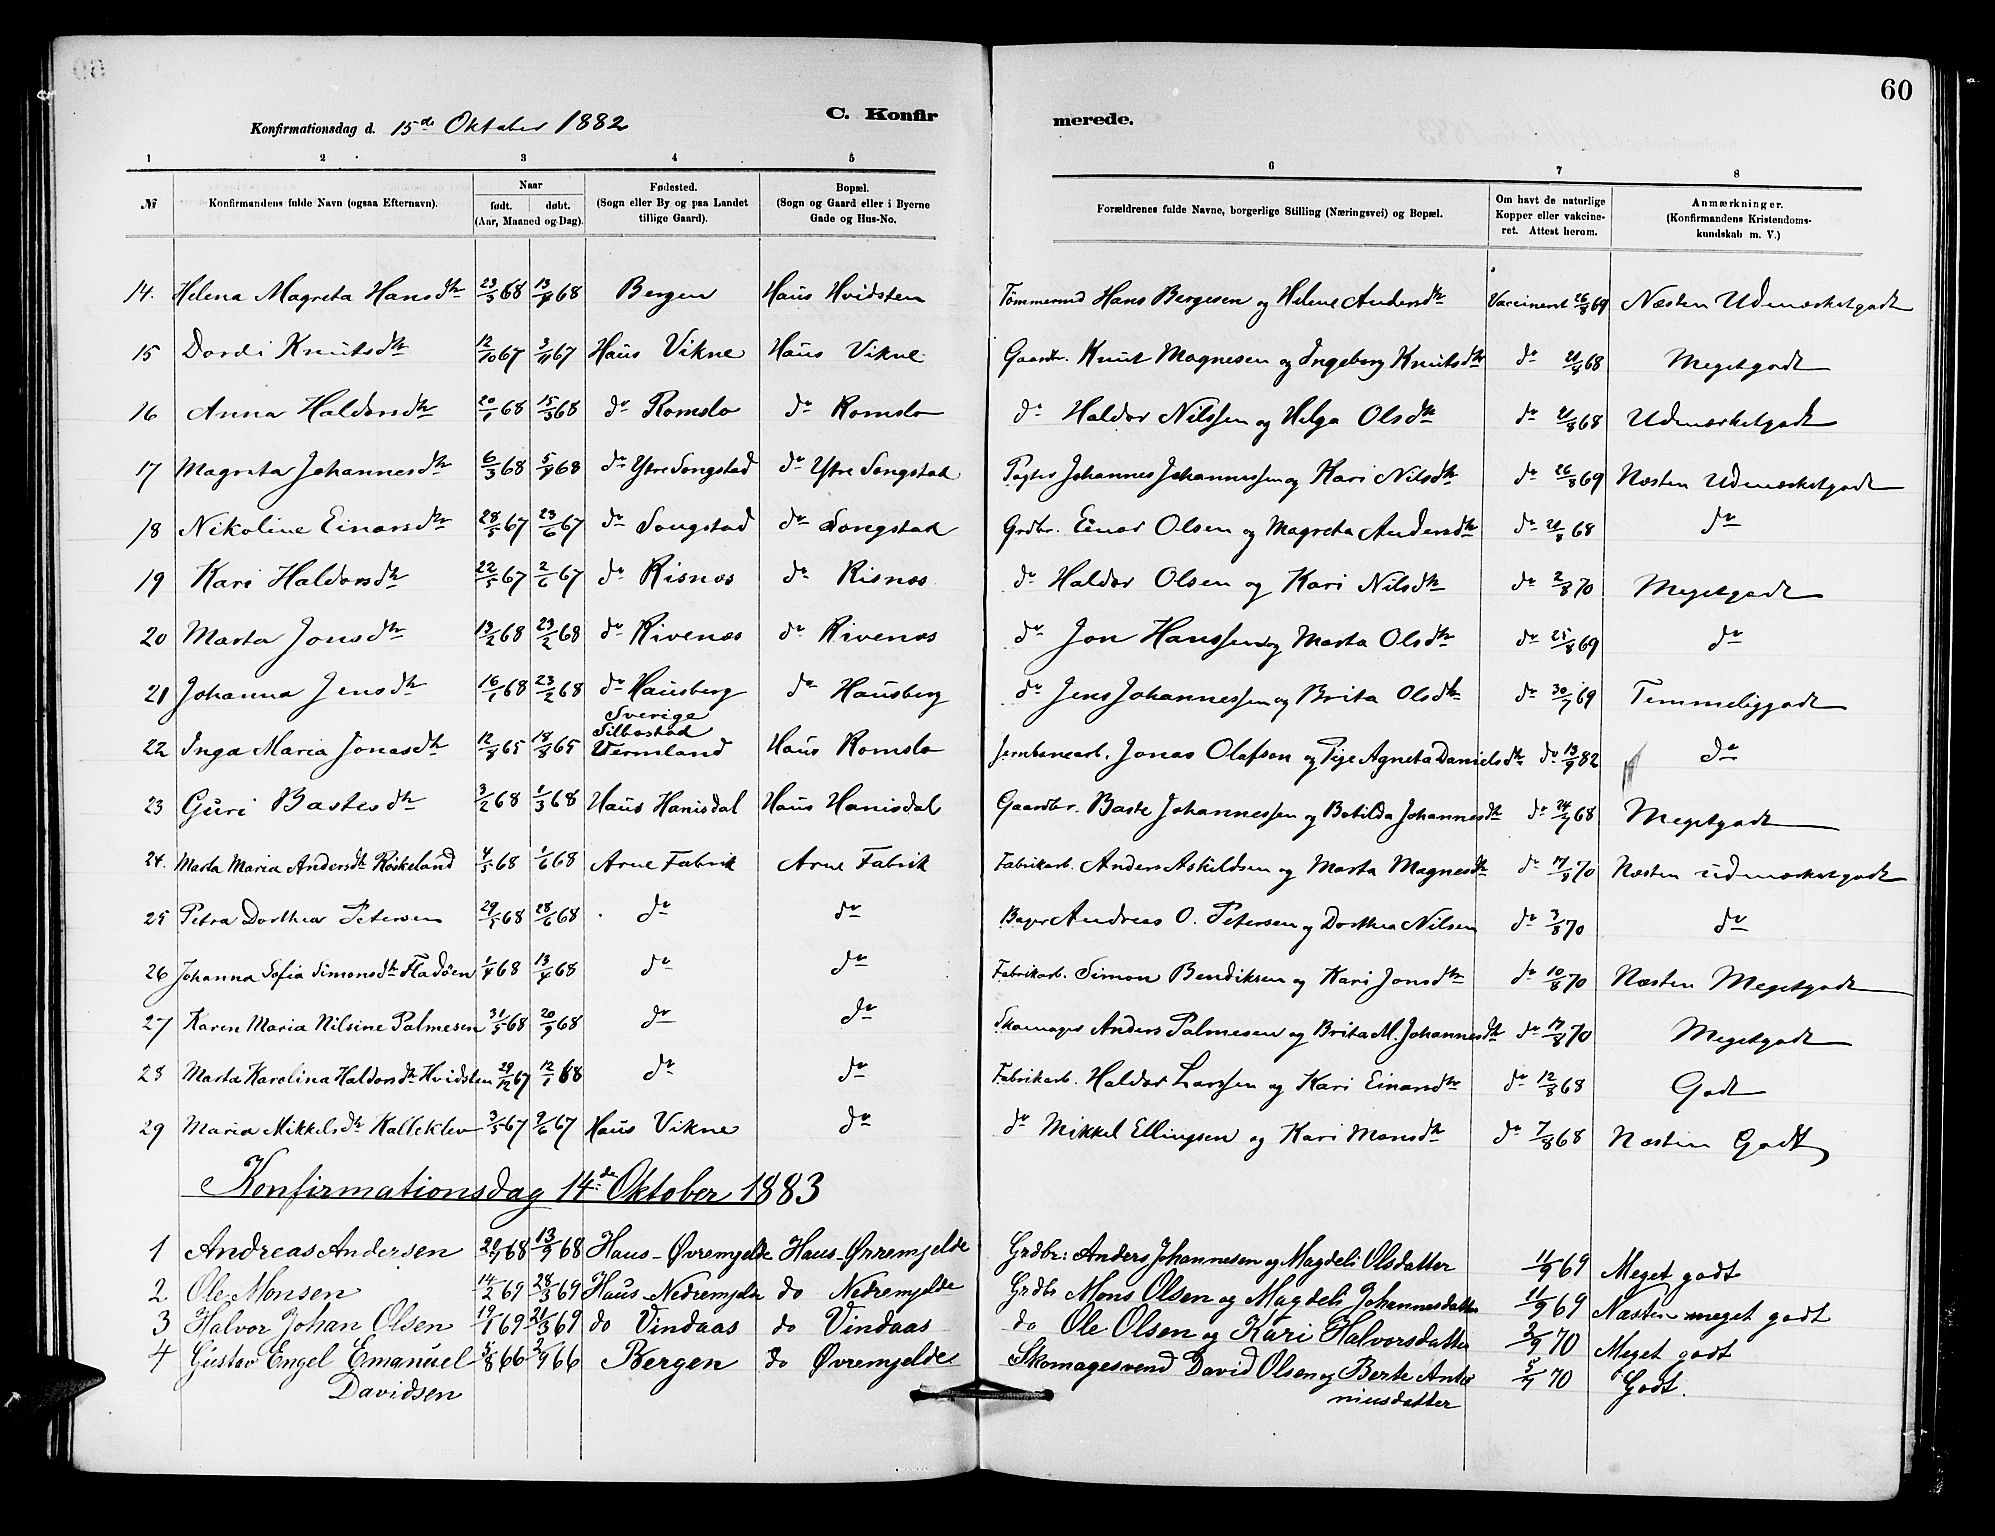 60
Konfirmationsdag d. 15de Oktober 1882
C. Konfir merede.
1 2 3 4 5 6 7 8
№ Konfirmandens fulde Navn (ogsaa Efternavn). Naar født. døbt. (Aar, Maaned og Dag). Fødested. (Sogn eller By og paa Landet tillige Gaard). Bopæl. (Sogn og Gaard eller i Byerne Gade og Hus-No. Forældrenes fulde Navne, borgerlige Stilling (Næringsvei) og Bopæl. Om havt de naturlige Kopper eller vakcineret. Attest herom. Anmærkninger. (Konfirmandens Kristendomskundskab m. V.)
14. Helena Magreta Hansdtr 68 68 Bergen Haus Hvidsten Tømmermd Hans Bergesen og Helene Andersdtr Vaccineret 26/8 69 Næsten Udmærketgodt
15 Dordi Knutsdtr 12/10 67 3/11 67 Haus Vikne Haus Vikne Gaardbr. Knut Magnesen og Ingeborg Knutsdtr do 21/8 68 Megetgodt
16 Anna Haldorsdtr 20/1 68 15/3 68 do Romslo do Romslo do Haldor Nilssen og Helga Olsdtr do 21/8 68 Udmærketgodt
17 Magreta Johannesdtr 6/3 68 5/4 68 do Ytre Songstad do Ytre Songstad Pagter Johannes Johannessen og Kari Nilsdtr do 26/8 69 Næsten Udmærketgodt
18 Nikoline Einarsdtr 28/5 67 23/6 67 do Songstad do Songstad Grdbr. Einar Olsen og Magreta Andersdtr do 21/8 68 do
19 Kari Haldorsdtr 22/5 67 2/6 67 do Risnes do Risnes do Haldor Olsen og Kari Nilsdtr do 2/8 70 Megetgodt
20 Marta Jonsdtr 13/2 68 23/2 68 do Rivenes do Rivenes do Jon Hanssen og Marta Olsdtr do 25/8 69 do
21 Johanna Jensdtr 16/1 68 23/2 68 do Hausberg do Hausberg do Jens Johannessen og Brita Olsdtr do 30/7 69 Temmeliggodt
22 Inga Maria Jonasdtr 12/8 65 18/8 65 Sverige Silbostad Vermland Haus Romslo Jernbanearb. Jonas Olafson og Agneta Danielsdtr do 13/9 82 do
23 Guri Bastesdtr 3/2 68 1/3 68 Haus Hanisdal Haus Hanisdal Gaardbr. Baste Johannessen og Botilda Johannesdtr do 24/7 68 Megetgodt
24. Marta Maria Andersdtr Röskeland 4/5 68 1/6 68 Arne Fabrik Arne Fabrik Fabrikarb. Anders Askildsen og Marta Magnesdtr do 17/8 70 Næsten udmærketgodt
25 Petra Dorthea Petersen 29/5 68 28/6 68 do do Bager Andreas O. Petersen og Dorthea Nilsen do 3/8 70 do
26 Johanna Sofia Simonsdtr Fladöen 1/4 68 13/4 68 do do Fabrikarb. Simon Bendiksen og Kari Jonsdtr do 10/8 70 Næsten Megetgodt
27 Karen Maria Nilsine Palmesen 31/5 68 20/9 68 do do Skomager Anders Palmesen og Brita M. Johannesdtr do 17/8 70 Megetgodt
28 Marta Karolina Haldorsdtr Hvidsten 29/12 67 12/1 68 do do Fabrikarb. Haldor Larssen og Kari Einarsdtr do 12/8 68 Godt
29 Maria Mikkelsdtr Kalleklev 3/5 67 9/6 67 Haus Vikne do do Mikkel Ellingsen og Kari Monsdtr do 7/8 68 Næsten Godt
Konfirmationsdag 14de Oktober 1883
1 Andreas Andersen 68 13/9 68 Haus-Øvremjelde Haus-Øvremjelde Grdbr: Anders Johannesen og Magdeli Olsdatter 11/9 69 Meget godt
2 Ole Monsen 14/2 69 28/3 69 Haus-Nedremjelde do Nedremjelde Grdbr Mons Olsen og Magdeli Johannesdatter 11/9 69 Næsten meget godt
3 Halvor Johan Olsen 19/1 69 21/3 69 do Vindaas do Vindaas do Ole Olsen og Kari Halvorsdatter 2/9 70 Meget godt
4 Gustav Engel Emanuel 5/8 66 2/9 66 Bergen do Øvremjelde Skomagesvend David Olsen og Berte Anto 5/7 70 Godt.
Davidsen niusdatter